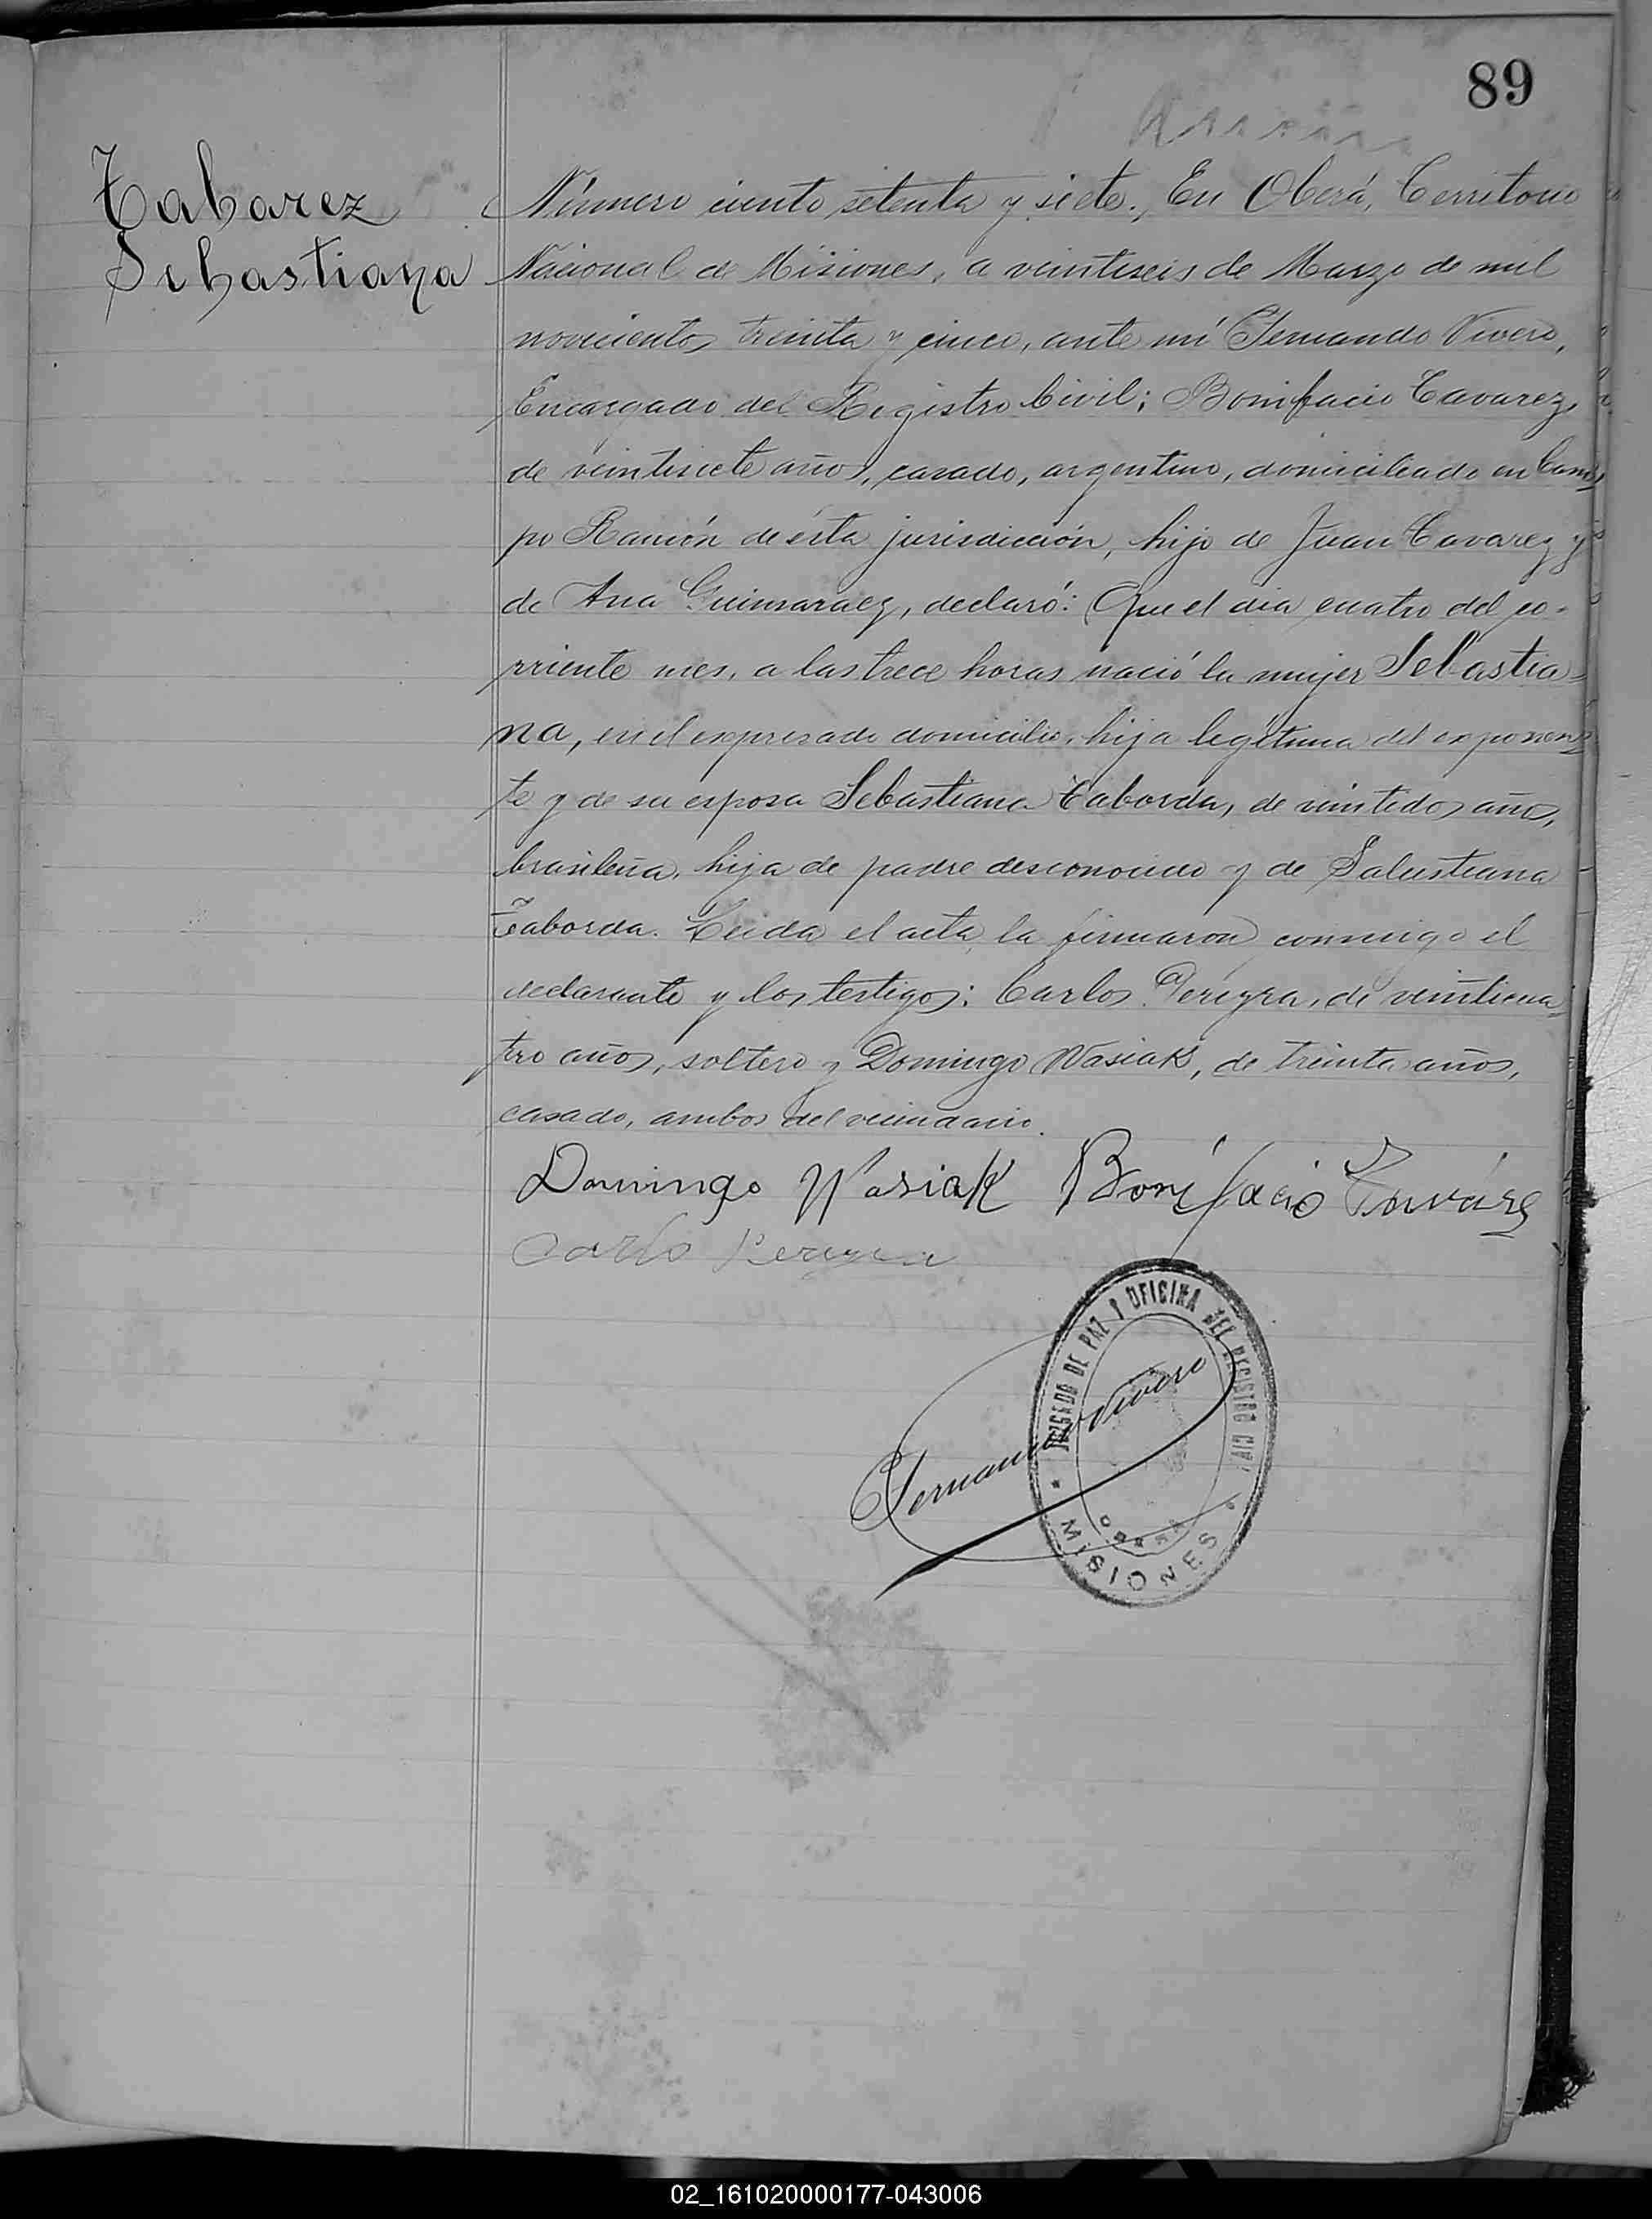 89
Tabarez
Sebastiana
Número ciento setenta y siete., En Oberá, Territorio
Nacional de Misiones, a veintiseis de Marzo de mil
novecientos treinta y cinco, ante mí Fernando Vivero,
Encargado del Registro Civil; Bonifacio Tavarez,
de veintisiete años, casado, argentino, domiciliado en Cam=
po Ramón de ésta jurisdicción, hijo de Juan Tavarez y
de Ana Guimaraez, declaró: Que el dia cuatro del co-
rriente mes, a las trece horas nació la mujer Sebastia=
na, en el expresado domicilio, hija legítima del exponen=
te y de su esposa Sebastiana Taborda, de veintidos años,
brasileña, hija de padre desconocido y de Salustiana
Taborda. Leida el acta, la firmaron conmigo el
declarante y los testigos: Carlos Pereyra, de veinticua=
tro años, soltero y Domingo Wasiak, de treinta años,
casado, ambos del vecindario.
Domingo Wasiak Bonifacio Taváres
Carlo Pereyra
JUZGADO DE PAZ Y OFICINA DEL REGISTRO CIVIL
Fernando Vivero
OBERA
MISIONES
02_161020000177-043006